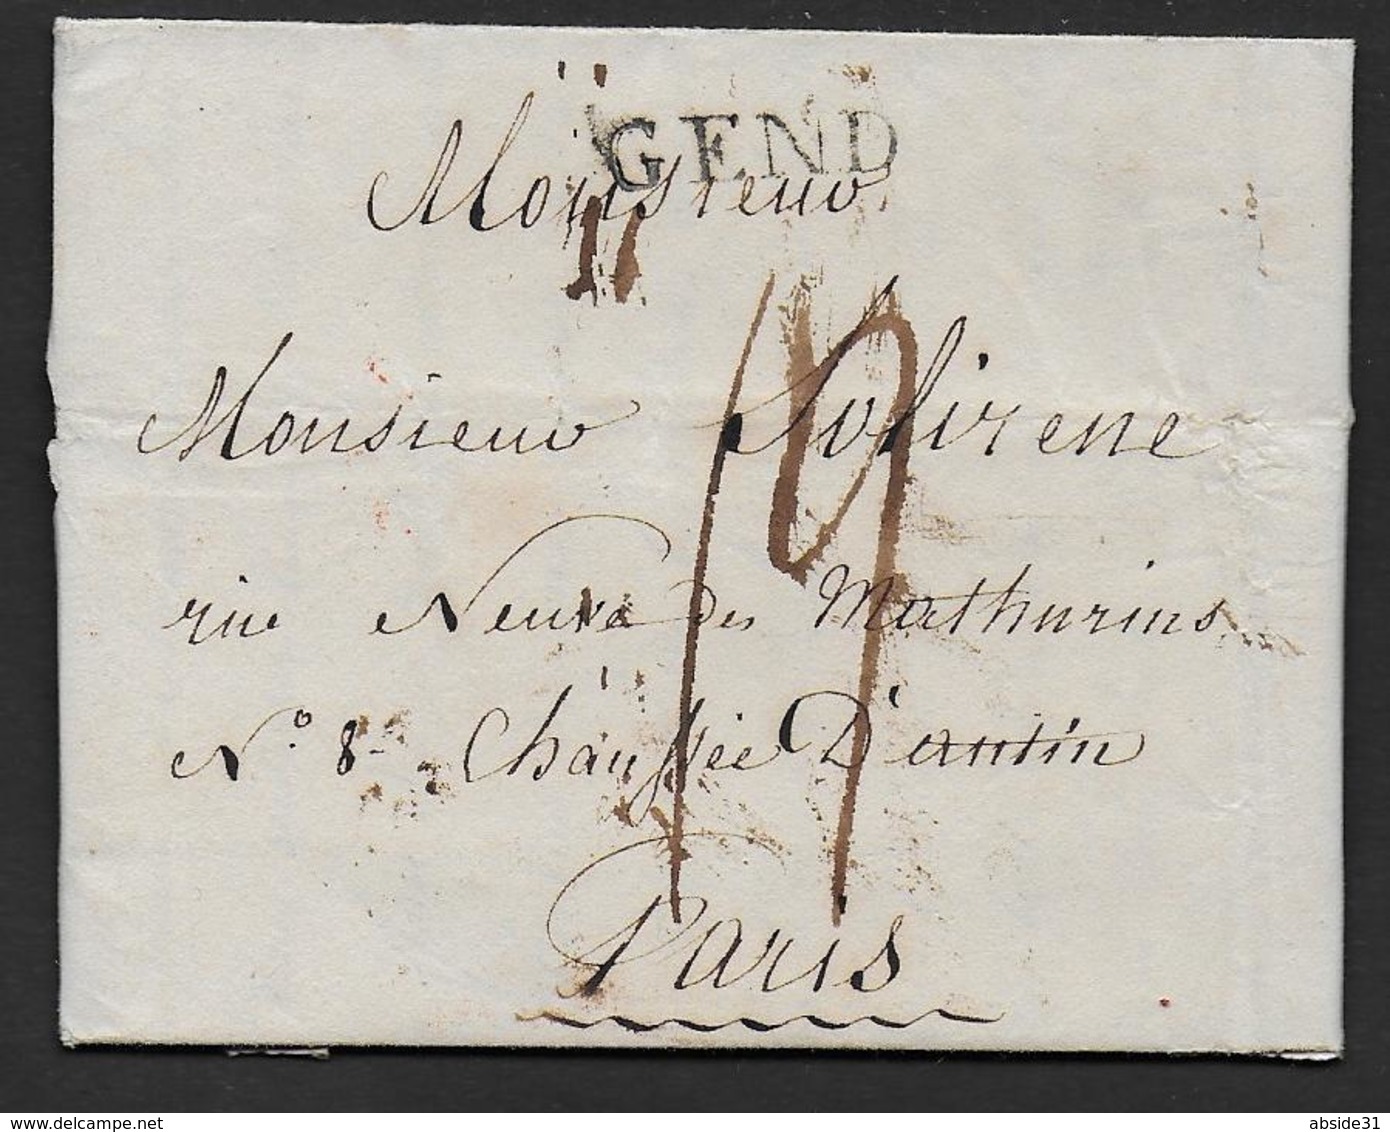 GEND
Monsieur
Monsieur Solirene
rue Neuve des Mathurins
N.° 8 - Chaussée D'antin
Paris
19
www.delcampe.net
abside31